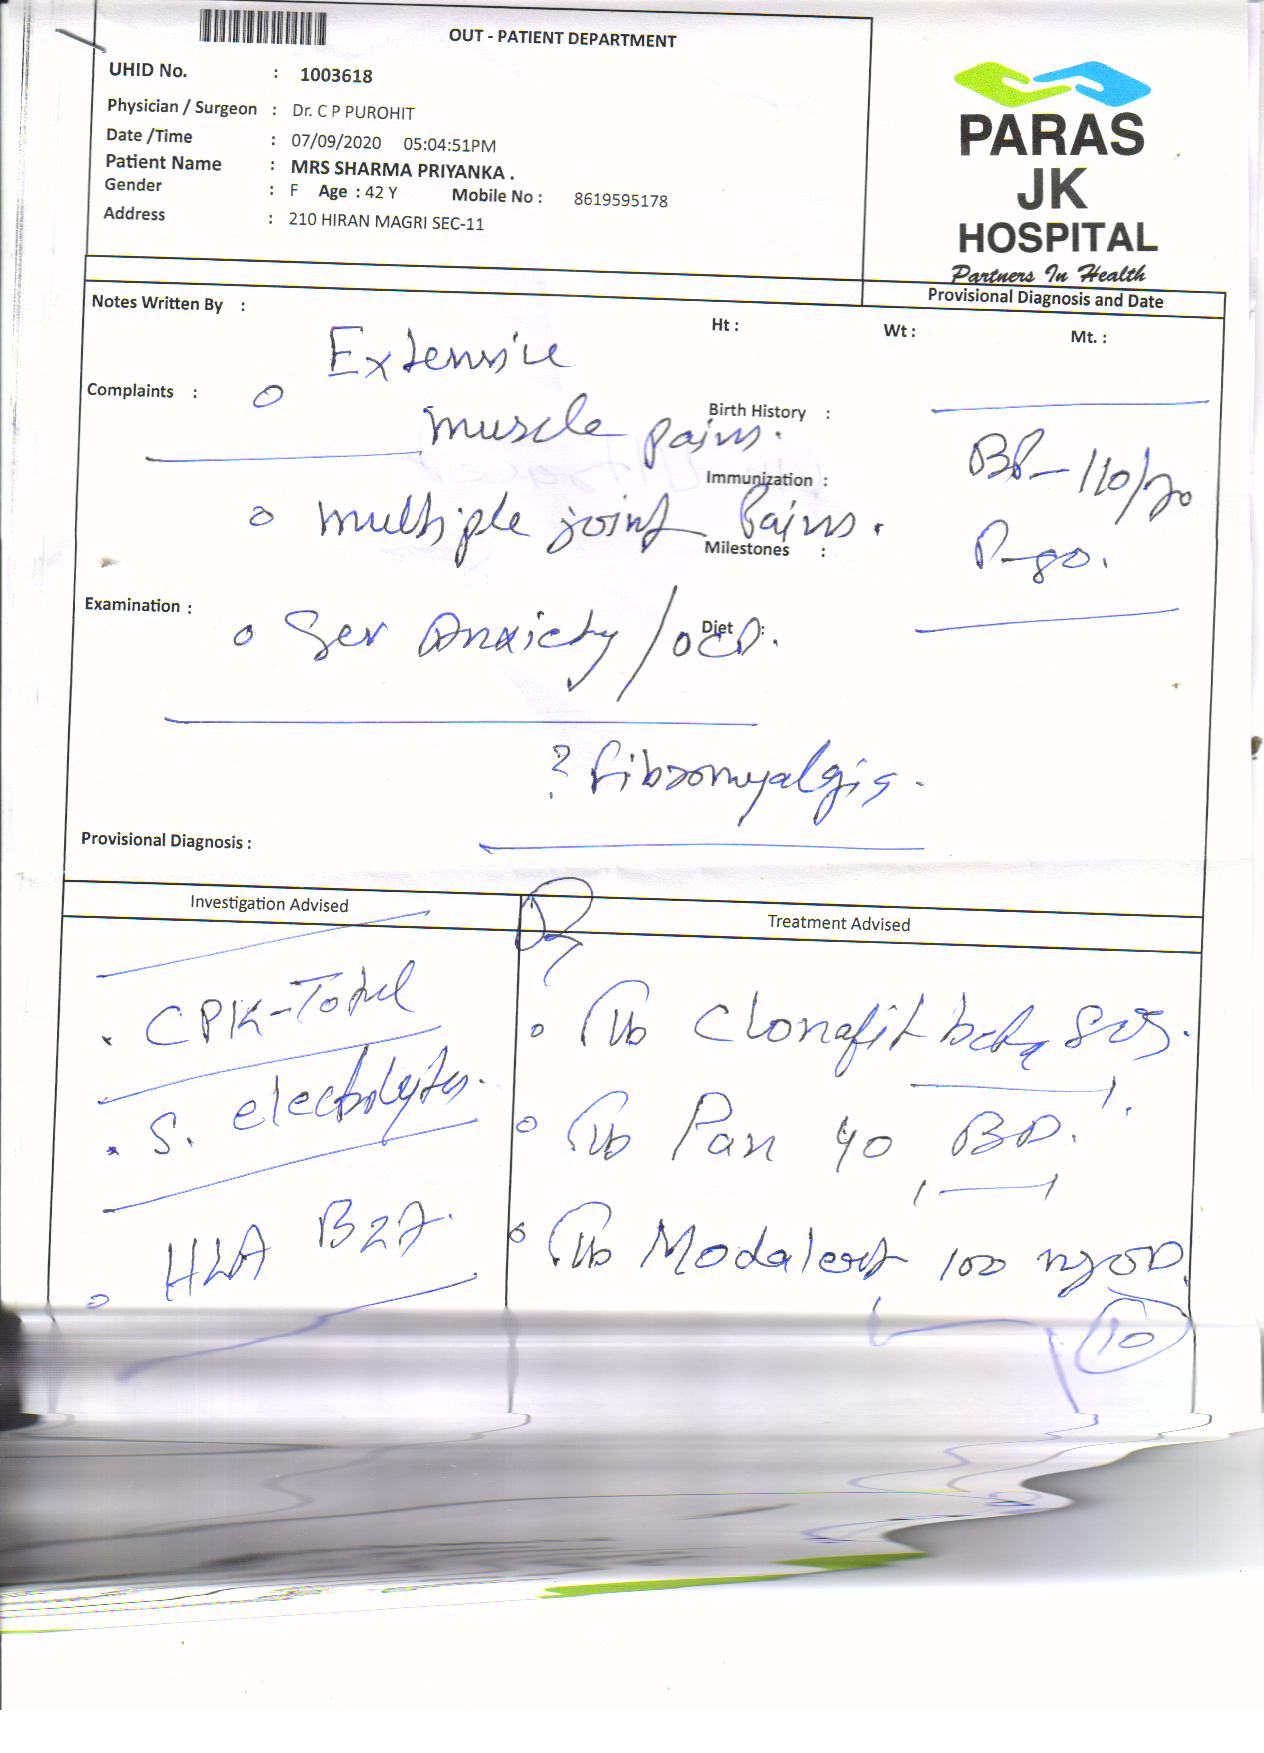 OUT - PATIENT DEPARTMENT
UHID No. : 1003618
Physician / Surgeon : Dr. C P PUROHIT
Date /Time : 07/09/2020 05:04:51PM
Patient Name : MRS SHARMA PRIYANKA .
Gender : F Age : 42 Y Mobile No : 8619595178
Address : 210 HIRAN MAGRI SEC-11
PARAS
JK
HOSPITAL
Partners In Health
Provisional Diagnosis and Date
Notes Written By :
Ht : Wt : Mt. :
Extensive
Complaints :
muscle pains.
Birth History :
BP- 110/70
Immunization :
multiple joint Pains.
Milestones :
P-80.
Examination :
Sev Anxiety / OCD.
Diet :
? fibromyalgis.
Provisional Diagnosis :
Investigation Advised
Treatment Advised
Rx
CPK-Total
Tab Clonafit beta SOS.
S. electrolytes.
Tab Pan 40 BD.
HLA B27.
Tab Modalert 100 mg OD.
10